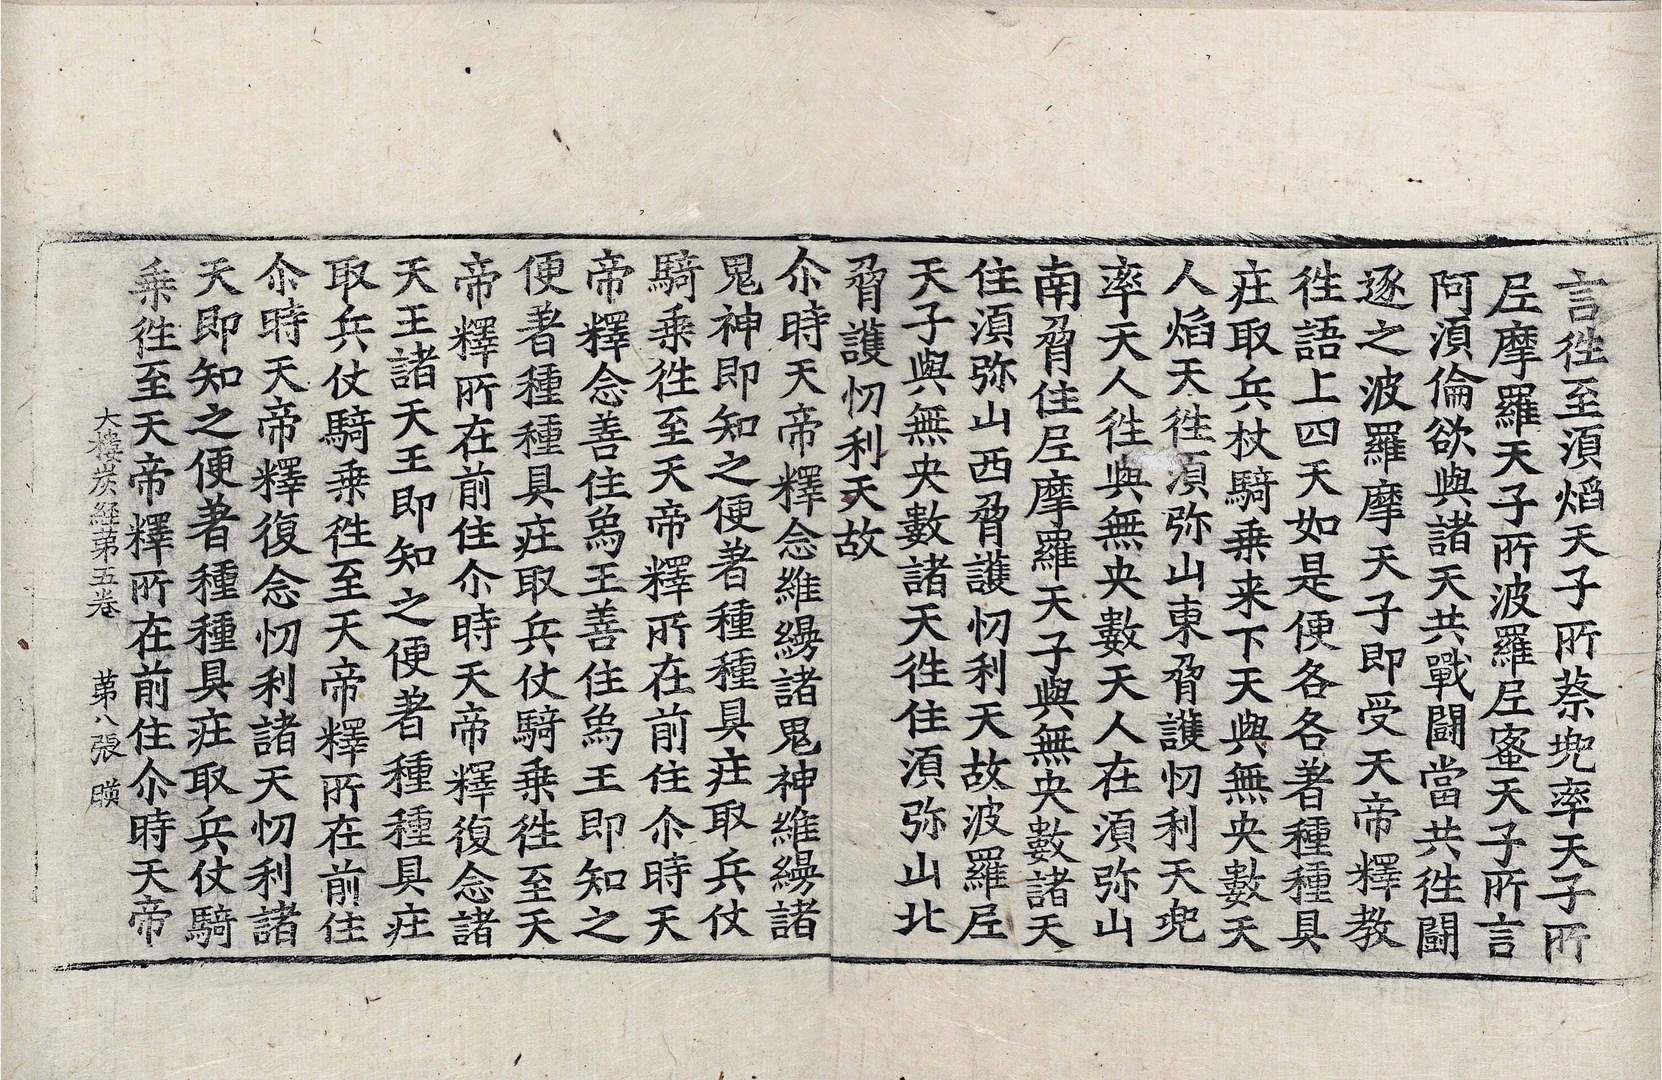 言徃至湏焰天子所蔡兠率天子所
𡰱摩羅天子所波羅𡰱蜜天子所言
阿湏倫欲與諸天共戰鬪當共徃鬪
逐之波羅摩天子即受天帝釋教
徃語上四天如是便各各著種種具
庄取兵杖騎乗来下天與無央數天
人焰天徃湏弥山東脅護忉利天兠
率天人徃與無央數天人在湏弥山
南脅住𡰱摩羅天子與無央數諸天
住湏弥山西脅護忉利天故波羅𡰱
天子與無央數諸天徃住湏弥山北
脅護忉利天故
尒時天帝釋念維㬅諸鬼神維㬅諸
鬼神即知之便著種種具庄取兵仗
騎乗徃至天帝釋所在前住尒時天
帝釋念善住烏王善住烏王即知之
便著種種具庄取兵仗騎乗徃至天
帝釋所在前住尒時天帝釋復念諸
天王諸天王即知之便著種種具庄
取兵仗騎乗徃至天帝釋所在前住
尒時天帝釋復念忉利諸天忉利諸
天即知之便著種種具庄取兵仗騎
乗徃至天帝釋所在前住尒時天帝
大樓炭經苐五卷 苐八張 暎